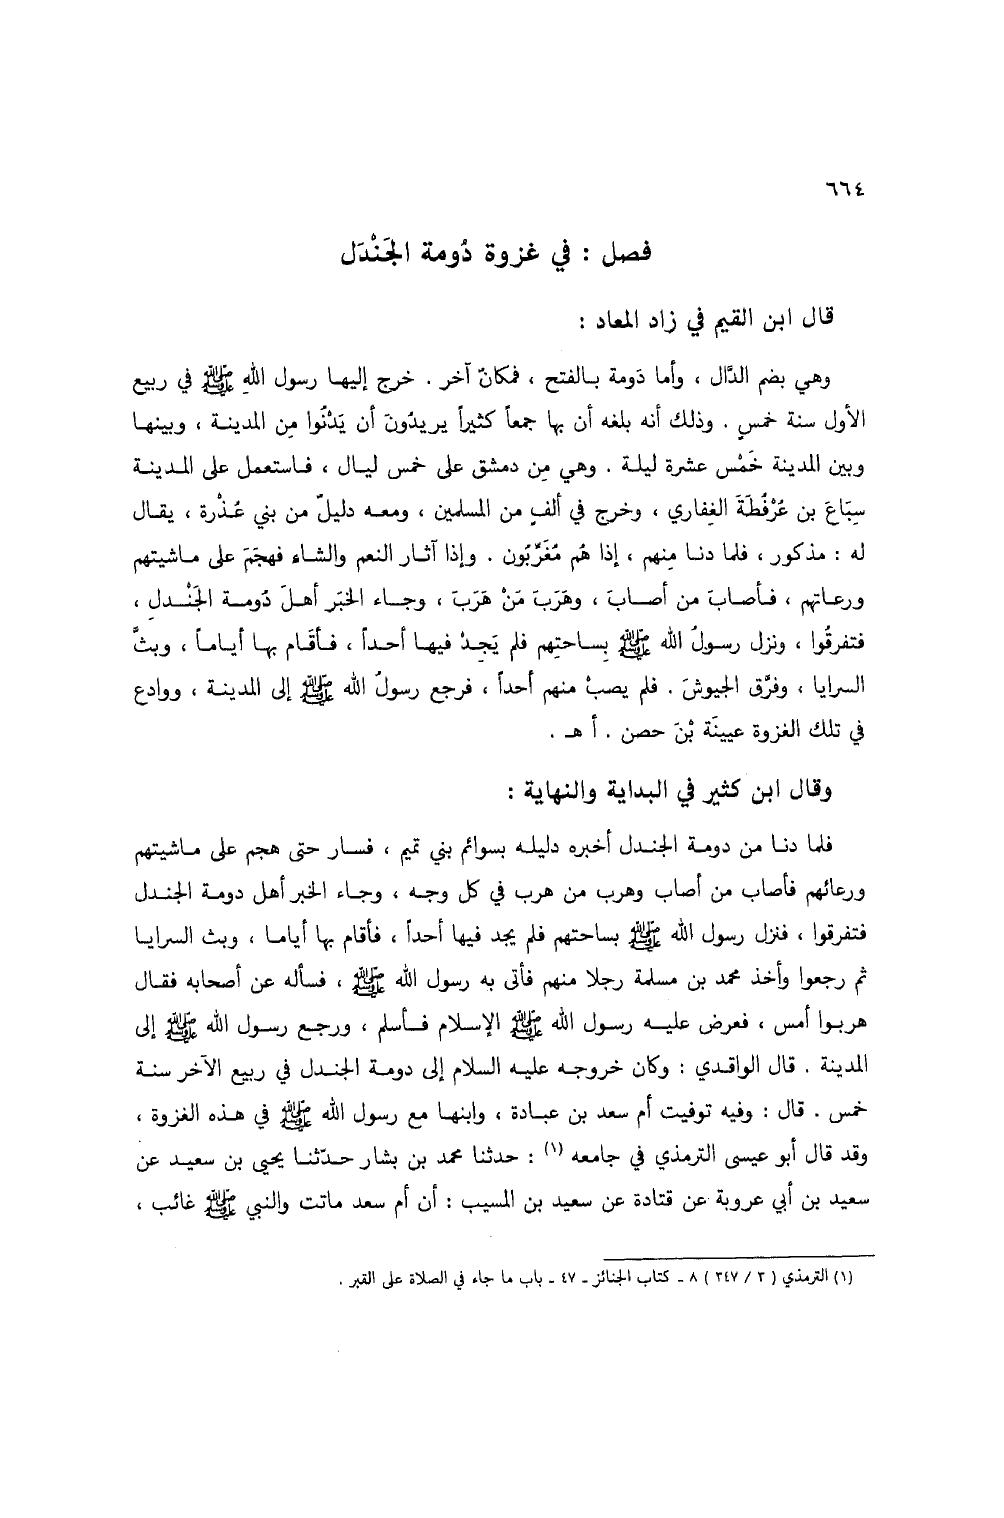 ٦٦٤
فصل : في غزوة دُومة الجَنْدَل
قال ابن القيم في زاد المعاد :
وهي بضم الدَّال ، وأما دَومة بـالفتح ، فمكانٌ آخر . خرج إليهـا رسول اللهِ ﷺ في ربيع
الأول سنة خمسٍ . وذلك أنه بلغه أن بها جمعاً كثيراً يريدُونَ أن يَدْنُوا مِن المدينـة ، وبينهـا
وبين المدينة خَمْس عشرة ليلـة . وهي مِن دمشق على خمس ليـال ، فـاستعمل على المـدينـة
سِبَاعَ بن عُرْفُطَةَ الغِفاري ، وخرج في ألفٍ من المسلمين ، ومعـه دليلٌ من بني عُـذْرة ، يقـال
له : مذكور ، فلما دنـا مِنهم ، إذا هُم مُغَرِّبُون . وإذا آثـار النعم والشاء فهجَمَ على مـاشيتهم
ورعـاتهم ، فـأصـابَ من أصـابَ ، وهَرَبَ مَنْ هَرَبَ ، وجـاء الخبَر أهـلَ دُومـة الجَنْـدلِ ،
فتفرقُوا ، ونزل رسـولُ الله ﷺ بِسـاحتِهم فلم يَجِـدْ فيهـا أحـداً ، فـأقَـام بهـا أيـامـاً ، وبثَّ
السرايا ، وفرَّق الجيوشَ . فلم يصبْ منهم أحداً ، فرجع رسولُ الله ﷺ إلى المدينـة ، ووادع
في تلك الغزوة عيينَة بْنَ حصن . أ هـ .
وقال ابن كثير في البداية والنهاية :
فلما دنـا من دومـة الجنـدل أخبره دليلـه بسوائم بني تميم ، فسـار حتى هجم على مـاشيتهم
ورعائهم فأصاب من أصاب وهرب من هرب في كل وجـه ، وجـاء الخبر أهل دومـة الجنـدل
فتفرقوا ، فنزل رسول الله ﷺ بساحتهم فلم يجد فيها أحداً ، فأقام بها أيامـا ، وبث السرايـا
ثم رجعوا وأخذ محمد بن مسلمة رجلا منهم فأتى به رسول الله ﷺ ، فسأله عن أصحابه فقـال
هربـوا أمس ، فعرض عليـه رسـول الله ﷺ الإسـلام فـأسلم ، ورجـع رسـول الله ﷺ إلى
المدينة . قال الواقـدي : وكان خروجـه عليـه السلام إلى دومـة الجنـدل في ربيع الآخر سنـة
خمس . قال : وفيه توفيت أم سعد بن عبـادة ، وابنهـا مع رسول الله ﷺ في هـذه الغزوة ،
وقد قال أبو عيسى الترمذي في جامعه (١) : حدثنا محمد بن بشار حـدّثنـا يحيى بن سعيـد عن
سعيد بن أبي عروبة عن قتادة عن سعيد بن المسيب : أن أم سعد ماتت والنبي ﷺ غائب ،
(١) الترمذي ( ٣ / ٣٤٧ ) ٨ ـ كتاب الجنائز ـ ٤٧ ـ باب ما جاء في الصلاة على القبر .